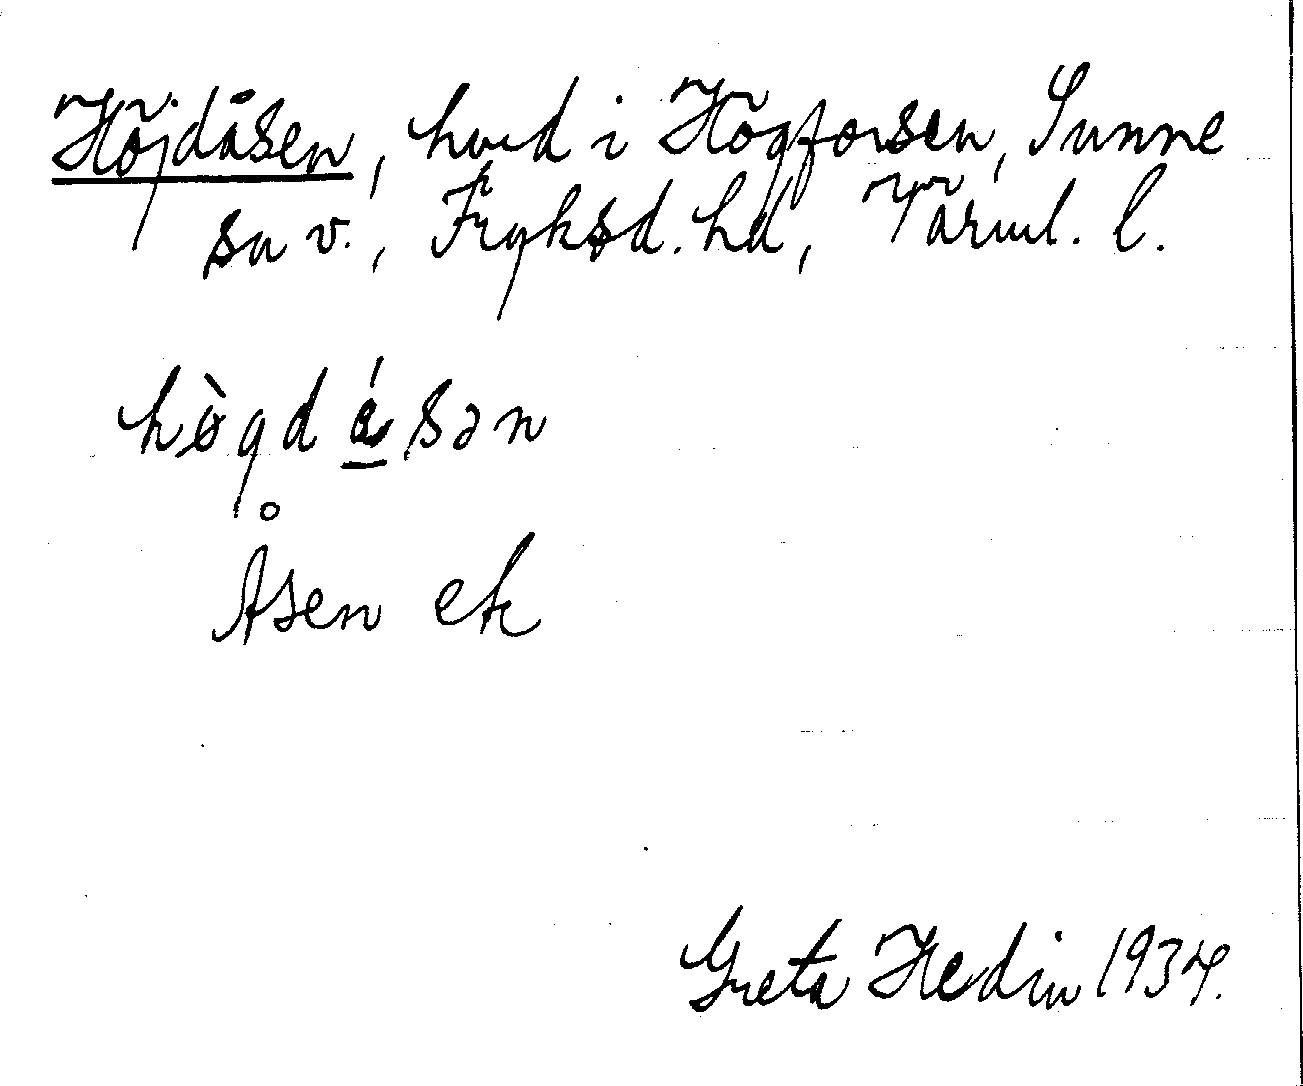 Höjdåsen, hmd i Högforsen, Sunne
sn v., Fryksd. hd, Värml. l.
hògd åsən
Åsen ek
Greta Hedin 1934.